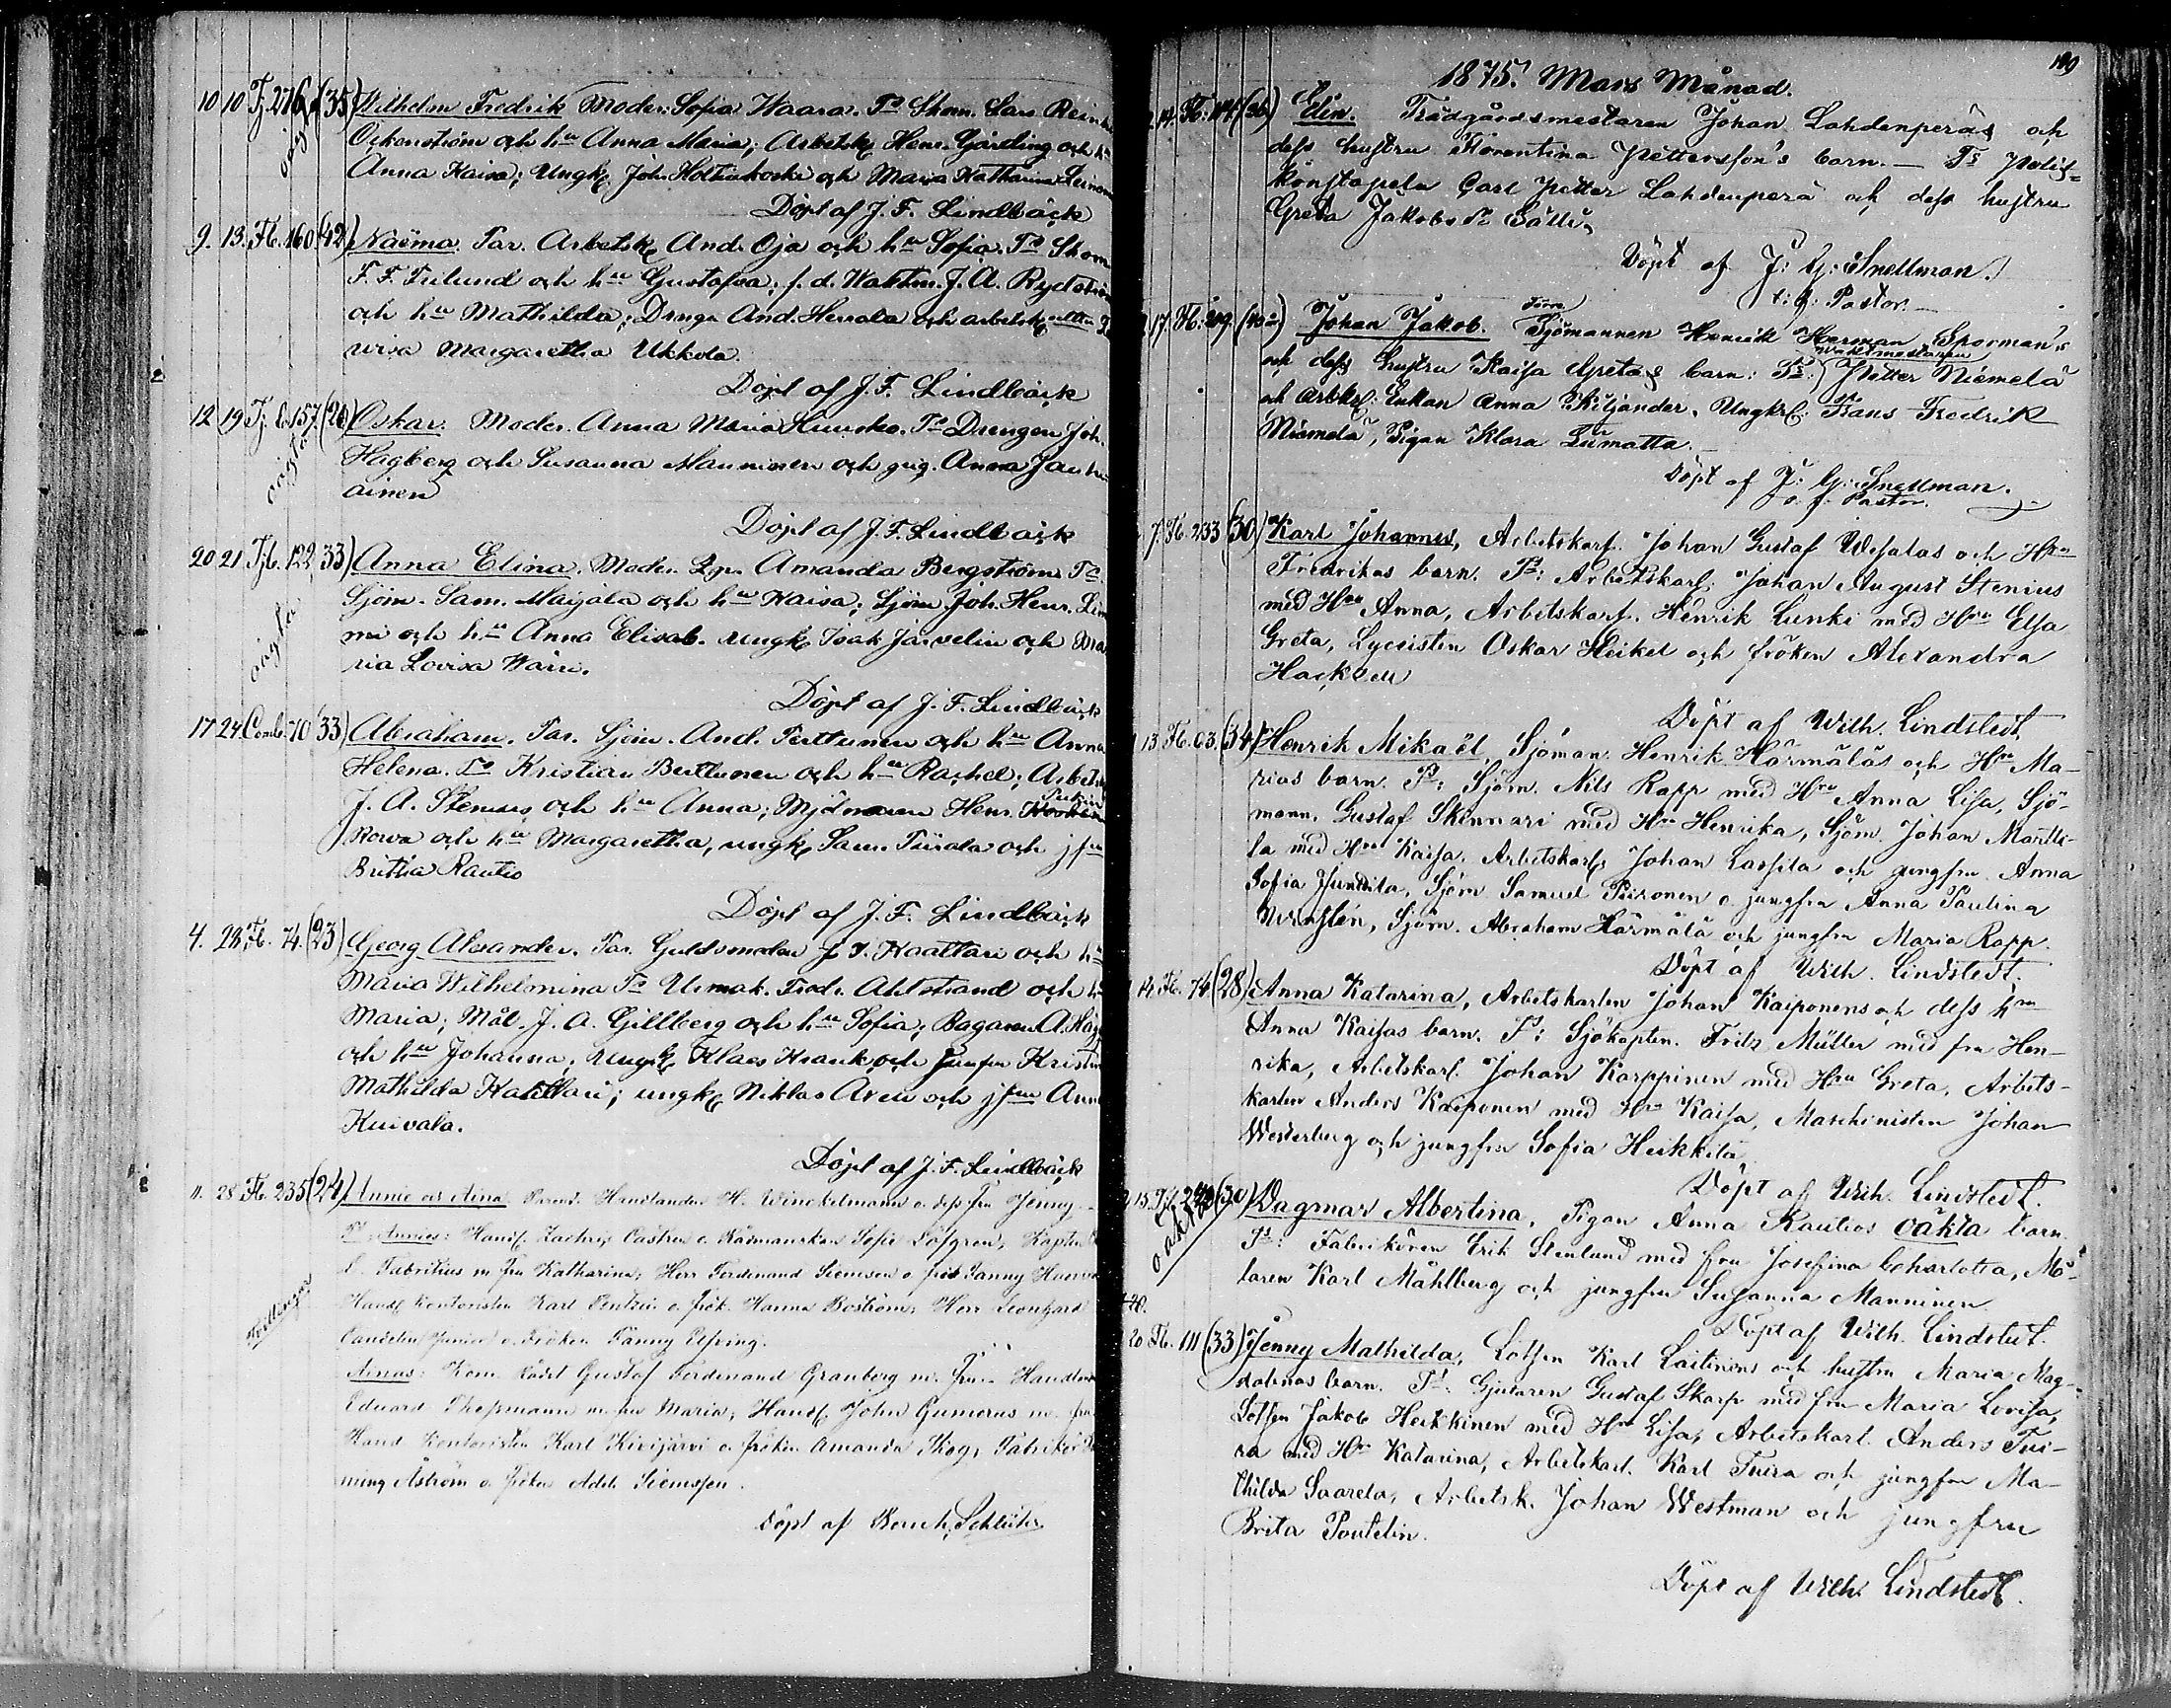 10 10 Tj. 276 (35) Wilhelm Fredrik Moder: Sofia Waara. Ts Skom. Lars
Öckenström och hu Anna Maria; Arbetsk. Henr. Gjärding och hu
Anna Kaisa; Ungk. Joh. Holtinkoski och Maria Katharina
Döpt af J. F. Lindbäck
9. 13. Fb. 160 (42) Naëma. Far. Arbetsk. And. Oja och hu Sofia. Ts Skom
F. F. Frilund och hu Gustafva; f. d. Waktm. J. A. Rydström
och hu Mathilda; Dreng And. Herrala och arbetsk. enkan
Margaretha Ukkola.
Döpt af J. F. Lindbäck
12 19 Tj. b. 157 (20) Oskar. Moder. Anna Maria Ts Drengen Joh.
oägta
Hagberg och Susanna Manninen och pig. Anna
ainen
Döpt af J. F. Lindbäck
20 21 Tjb. 122 33) Anna Elina. Moder. Amanda Bergström Ts
oägta
Sjöm. Sam. Maijala och hu Kaisa; Sjöm. Joh. Henr.
och hu Anna Elisab. ungk. Isak Järvelin och Ma
ria Lovisa
Döpt af J. F. Lindbäck
17 24 Comb. 70 33) Abraham. Far. Sjöm. And. Perttunen och hu Anna
Helena. Ts Kristian Perttunen och hu Rachel; Arbetsk
J. A. Stenius och hu Anna; Henr.
och hu Margaretha, ungk. Sam. Tuirala och jfru
Britha Rautio
Döpt af J. F. Lindbäck
4. 28. Fb. 74. (23) Georg Alexander. Far. Guldsmeden J. Kaattari och hu
Maria Wilhelmina Ts Urmak. Fredr. Ahlstrand och hu
Maria; Mål. J. A. Gillberg och hu Sofia; Bagaren A.
och hu Johanna; Ungk. Klaes Krank och Jungfru Kristin
Mathilda Kaattari; ungk. Niklas Aren och jfru Ann
Kuivala.
Döpt af J. F. Lindbäck
11. 28 Fb. 235 (24) Annie och Aina Handlanden H. Winckelmann o. dess fru Jenny
Ts Annies: Handl. Castrén o. Rådmanskan Sofie Löfgren, Kapten
Fabritius m. fru Katharina; Herr Ferdinand Siemsen o. frök Fanny
Tvillingar
Handl. Kontoristen Karl o. frök. Hanna Boström, Herr Leonhard
Candelin Junior o. Fröken Fanny
Ainas: Kom. Rådet Gustaf Ferdinand Granberg m. fru. Handlan
Eduard m. fru Maria; Handl. John Gumerus m. fru
Hand. Kontoristen Karl Kivijärvi o. fröken Amanda Skog, Fabrikör
ning Åström o. fröken Adele Siemssen.
Döpt af
189
1875. Mars Månad.
14. Fb: 114 (36) Elin. Trädgårdsmestaren Johan Lahdenperäs och
dess hustru Florentina Pettersson's barn. — Ts Polis=
konstapeln Carl Petter Lahdenperä och dess hustru
Greta Jakobsdr
Döpt af J: G: Snellman.
t: f: Pastor.
17. Fb: 209. Johan Jakob. Förre Sjömannen Henrik Herman Sporman's
och dess hustru Kaisa Gretas barn: Ts: Waktmestaren Petter Niemelä
och Arbkrl: Enkan Anna Kiljander, Ungkrl: Frans Fredrik
Niemelä, Pigan Klara Lumatta.
Döpt af J: G: Snellman.
t. f. Pastor.
7. Fb. 233 (30) Karl Johannes, Arbetskarl. Johan Gustaf Wesalas och Hru
Fredrikas barn. Ts: Arbetskarl: Johan August Stenius
med Hru Anna, Arbetskarl. Henrik Lunki med Hru Elsa
Greta, Lyceisten Oskar Heikel och fröken Alexandra
Hacklin
Döpt af Wilh. Lindstedt.
13. Fb. 63. (34) Henrik Mikael, Sjöman. Henrik Härmäläs och Hru Ma-
rias barn. Ts: Sjöm. Nils Rapp med Hru Anna Lisa, Sjö-
mann. Gustaf Skinnari med Hru Henrika, Sjöm. Johan Martti-
la med Hru Kaisa, Arbetskarl. Johan Lassila och jungfru Anna
Sofia Sjöm. Samuel Piironen o. jungfru Anna Paulina
Sjöm. Abraham Härmälä och jungfru Maria Rapp.
Döpt af Wilh. Lindstedt.
14. Fb. 74 (28) Anna Katarina, Arbetskarlen Johan Kaiponens och dess hru
Anna Kaisas barn. Ts: Sjökapten. Fritz Müller med fru Hen-
rika, Arbetskarl. Johan Karppinen med Hru Greta, Arbets-
karlen Anders Kaiponen med Hru Kaisa, Maschinisten Johan
Westerberg och jungfru Sofia Heikkilä
Döpt af Wilh. Lindstedt.
15. (30) Dagmar Albertina, Pigan Anna Rautios oäkta barn.
oäkta
Ts: Fabrikören Erik Stenlund med fru Josefina Charlotta, Må-
laren Karl Måhlberg och jungfru Susanna Manninen.
Döpt af Wilh. Lindstedt.
20. Fb. 111 (33) Jenny Mathilda, Lotsen Karl Laitinens och hustru Maria Mag-
dalenas barn. Ts: Gjutaren Gustaf Skarp med fru Maria Lovisa,
Lotsen Jakob Heikkinen med Hru Lisa, Arbetskarl. Anders Tui-
ra med Hru Katarina, Arbetskarl. Karl Tuira och jungfru Ma-
thilda Saarela, Arbetsk. Johan Westman och jungfru
Brita Poutelin.
Döpt af Wilh. Lindstedt.